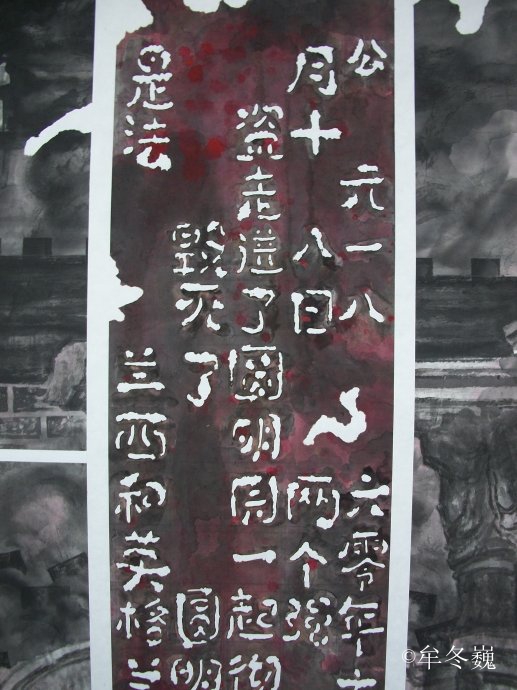 公元一八六零年十
月十八日两个强
盗走进了圆明园一起彻
毁灭了圆明
是法兰西和英格兰
©牟冬巍